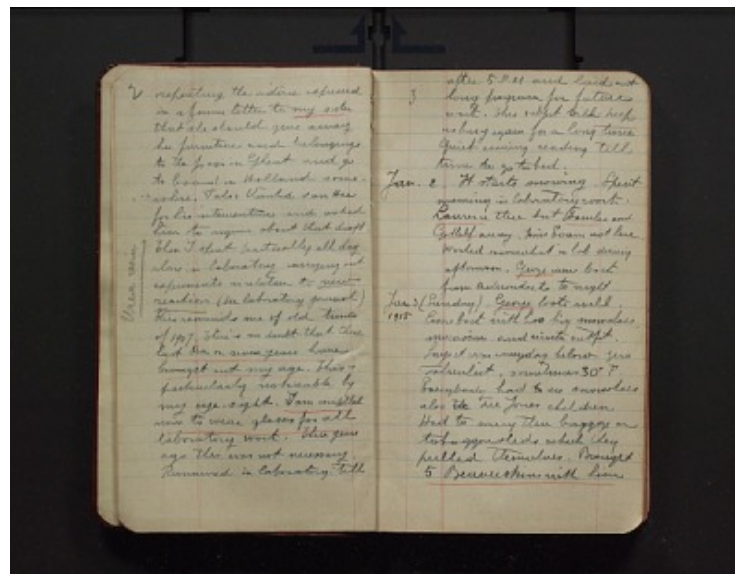 2
repeating the advice expressed
in a former letter to my sister
that she should give away
her furniture and belongings
to the poor in Ghent and go
to board in Holland some-
where. Also thanked van
for his intervention and asked
him to about that draft
Then I spent practically all day
alone in laboratory carrying out
experiments in relation to
reaction (See laboratory journal)
This reminds me of old times
of 1907. There is no doubt that these
last six or seven years have
brought out my age. This is
particularly noticeable by
my eye sight. I am compelled
now to wear glasses for all
laboratory work. Three years
ago this was not necessary.
Remained in laboratory till
3
after 5 P.M and laid out
long program for future
work. This subject will keep
us busy again for a long time
Quiet evening reading till
time to go to bed.
Jan. 2 It starts snowing Spent
morning in laboratory work.
is there but and
Gotthelf away. not here.
Worked somewhat in lab during
afternoon. George came back
from Adirondacks to night
Jan 3 (Sunday) George looks well.
1915
Came back with his big snowshoes,
moccasins and winter outfit.
Says it was everyday below zero
Fahrenheit, sometimes 30° F.
Everybody had to use snowshoes
also the Jones children
Had to carry their baggage on
toboggan sleds which they
pulled themselves. Brought
5 Beaverskins with him